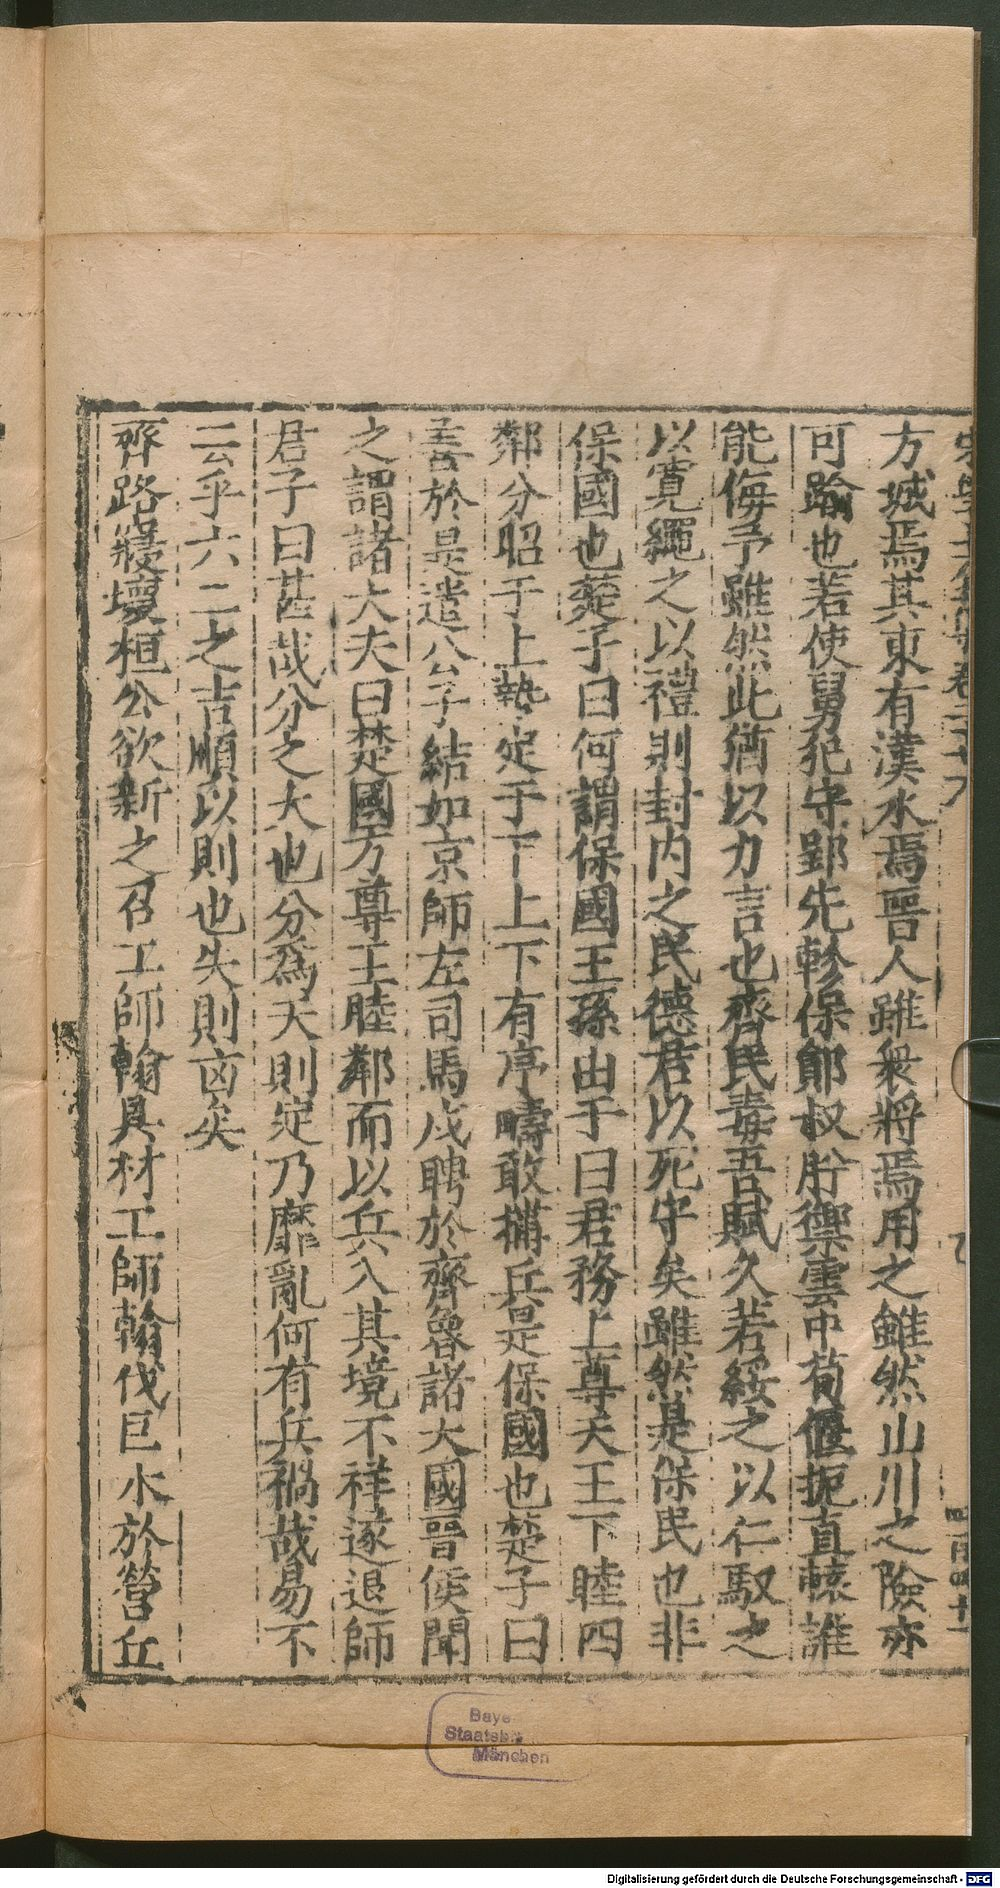 方城焉其東有漢水焉晉人雖衆將焉用之雖然山川之險亦
可踰也若使舅犯守郢先軫保鄖叔肸禦雲中荀偃扼直轅誰
能侮予雖然此猶以力言也齊民毒吾賦久若綏之以仁馭之
以寬繩之以禮則封内之民德君以死守矣雖然是保民也非
保國也楚子曰何謂保國王孫出于曰君務上尊天王下睦四
鄰分昭于上執定于下上下有序疇敢構兵是保國也楚子曰
善於是遣公子結如京師左司馬戍聘於齊魯諸大國晉侯聞
之謂諸大夫曰楚國方尊王睦鄰而以兵入其境不祥遂退師
君子曰甚哉分之大也分爲天則定乃靡亂何有兵禍哉易不
云乎六二之吉順以則也失則凶矣
齊路寢壞桓公欲新之召工師翰具材工師翰伐巨木於營丘
Baye
Staatsb
München
Digitalisierung gefördert durch die Deutsche Forschungsgemeinschaft - DFG